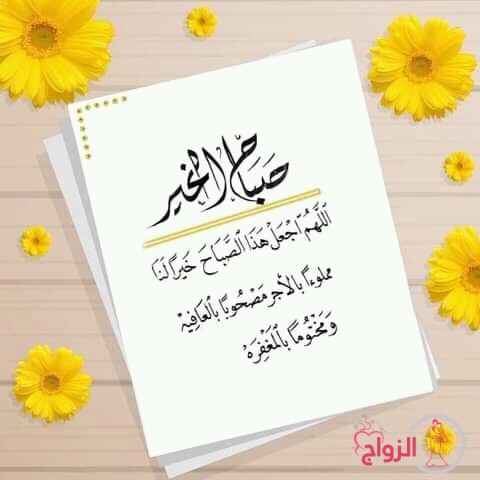 صباح الخير
اللَّهُمَّ اجْعَلْ هَذَا الصَّبَاحَ خَيْرًا لَنَا
مملوءًا بالأجر مَصْحُوبًا بالعَافِيَه
وَمَخْتُومًا بالمَغْفِرَه
الزواج